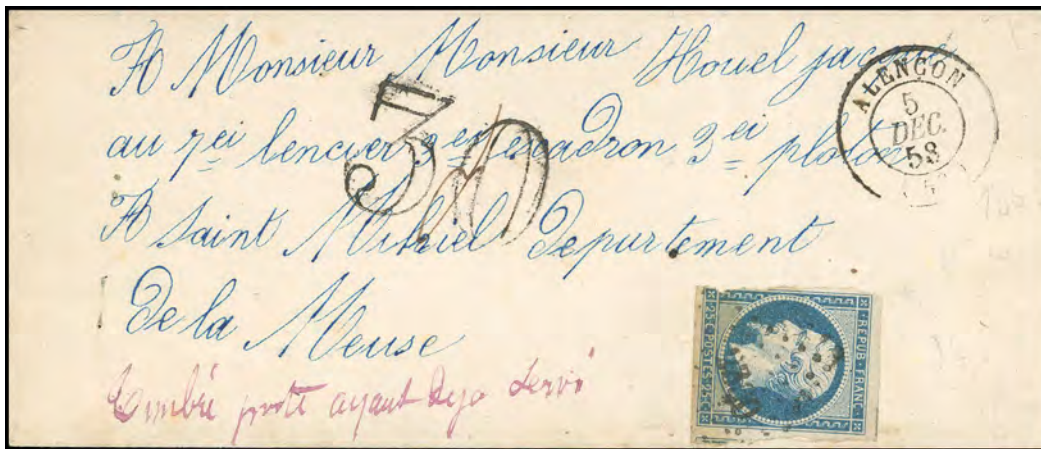 A Monsieur Monsieur Houel jacques
au 7ei lencier 3ei escadron 3ei ploton
A Saint Mihiel Departement
De la Meuse
Timbré poste ayant deja servi
30
ALENÇON
5
DEC.
58
REPUB·FRANC·
25C POSTES 25C